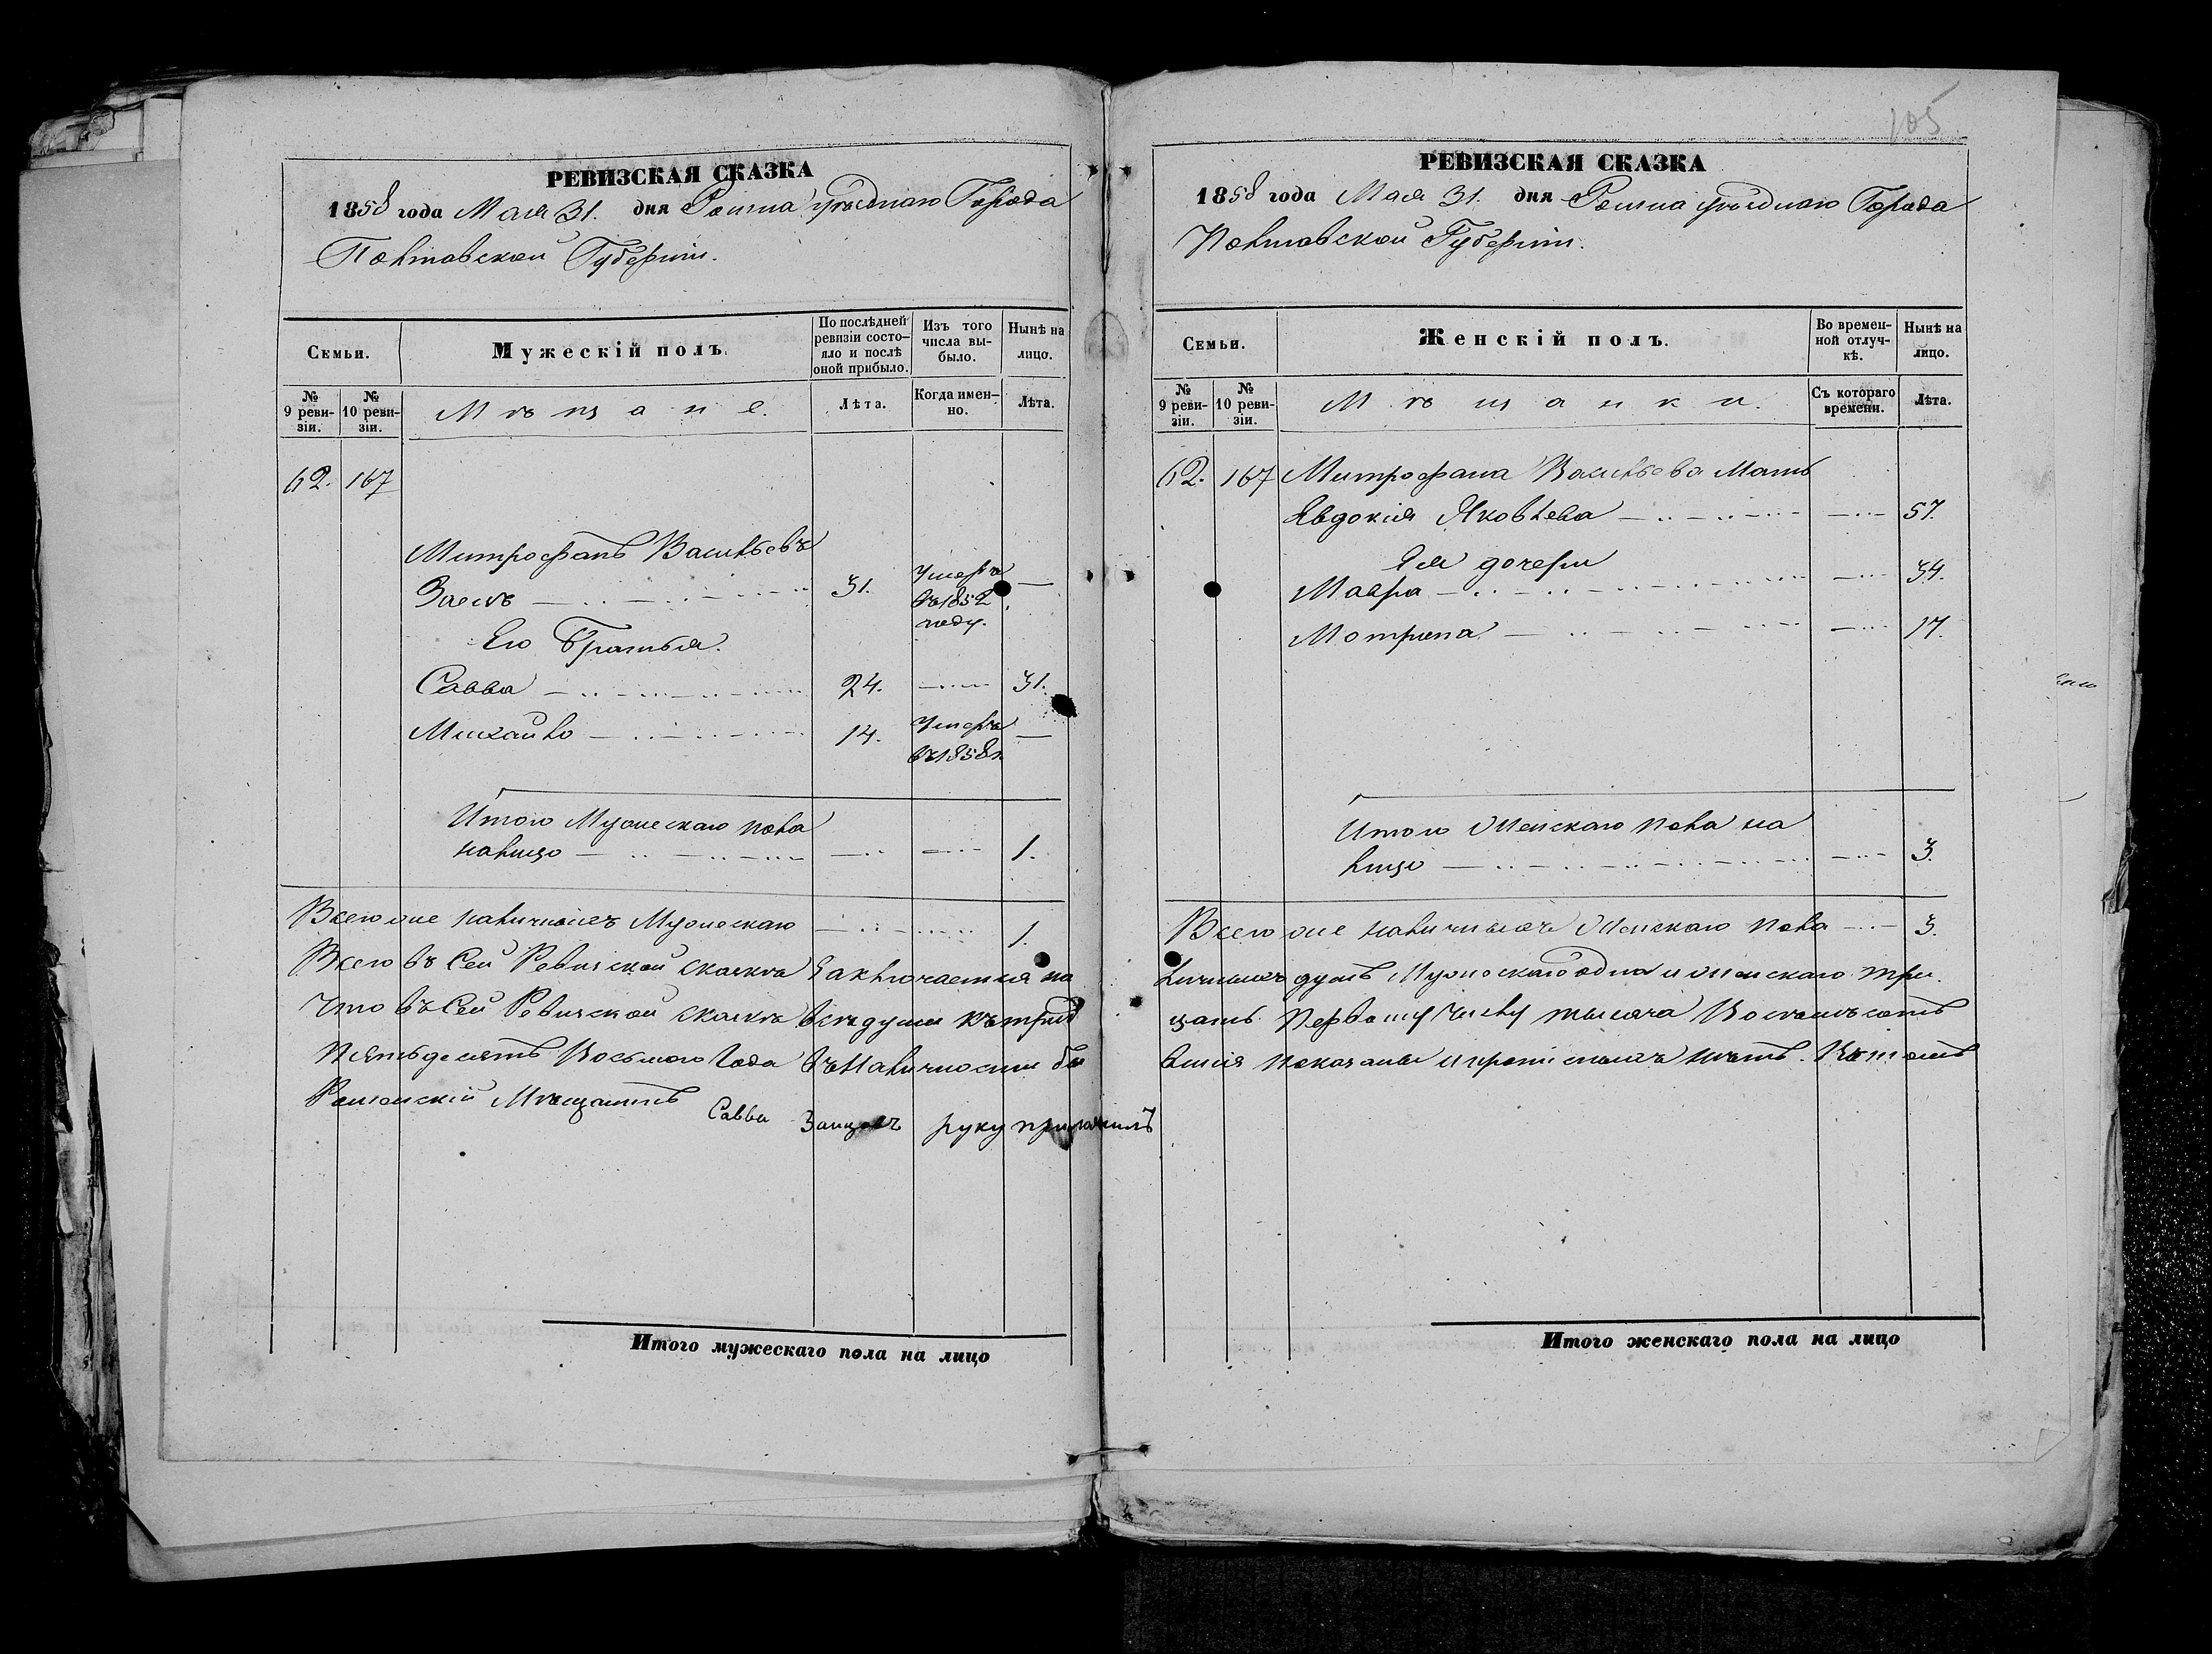 105
РЕВИЗСКАЯ СКАЗКА
1858 года Мая 31. дня Ромна уѣзднаго Города
Полтавской Губерніи.
Семьи.
Мужескій полъ.
По послѣдней ревизіи состояло и послѣ оной прибыло.
Изъ того числа выбыло.
Нынѣ на лицо.
№ 9 ревизіи.
№ 10 ревизіи.
Мѣщане.
Лѣта.
Когда именно.
Лѣта.
62. 167
Митрофанъ Васильевъ
Заецъ 31. Умеръ въ 1852 году. —
Его Братья.
Савва 24. 31.
Михайло 14. Умеръ въ 1858 г. —
Итого Мужескаго пола
налицо 1.
Всего же наличныхъ Мужескаго 1.
Всего въ Сей Ревизской сказкѣ Заключается на
Что въ Сей Ревизской сказкѣ всѣ души къ трид
Пятьдесятъ Восьмого Года въ Наличности бы
Роменскій Мѣщанинъ Савва Заицъ руку приложилъ
Итого мужескаго пола на лицо
РЕВИЗСКАЯ СКАЗКА
1858 года Мая 31. дня Ромна уѣзднаго Города
Полтавской Губерніи.
Семьи.
Женскій полъ.
Во временной отлучкѣ.
Нынѣ на лицо.
№ 9 ревизіи.
№ 10 ревизіи.
Мѣщанки.
Съ котораго времени.
Лѣта.
62. 167 Митрофана Васильева Мать
Явдокія Яковлева 57.
Ея дочери
Мавра 34.
Мотрона 17.
Итого Женскаго пола на
лицо 3.
Всего же наличныхъ Женскаго пола 3.
личныхъ душъ Мужескаго одна и женскаго три.
цать Первому Числу тысяча Восемьсотъ
вшія показаны и прописныхъ нѣтъ. Въ томъ
Итого женскаго пола на лицо